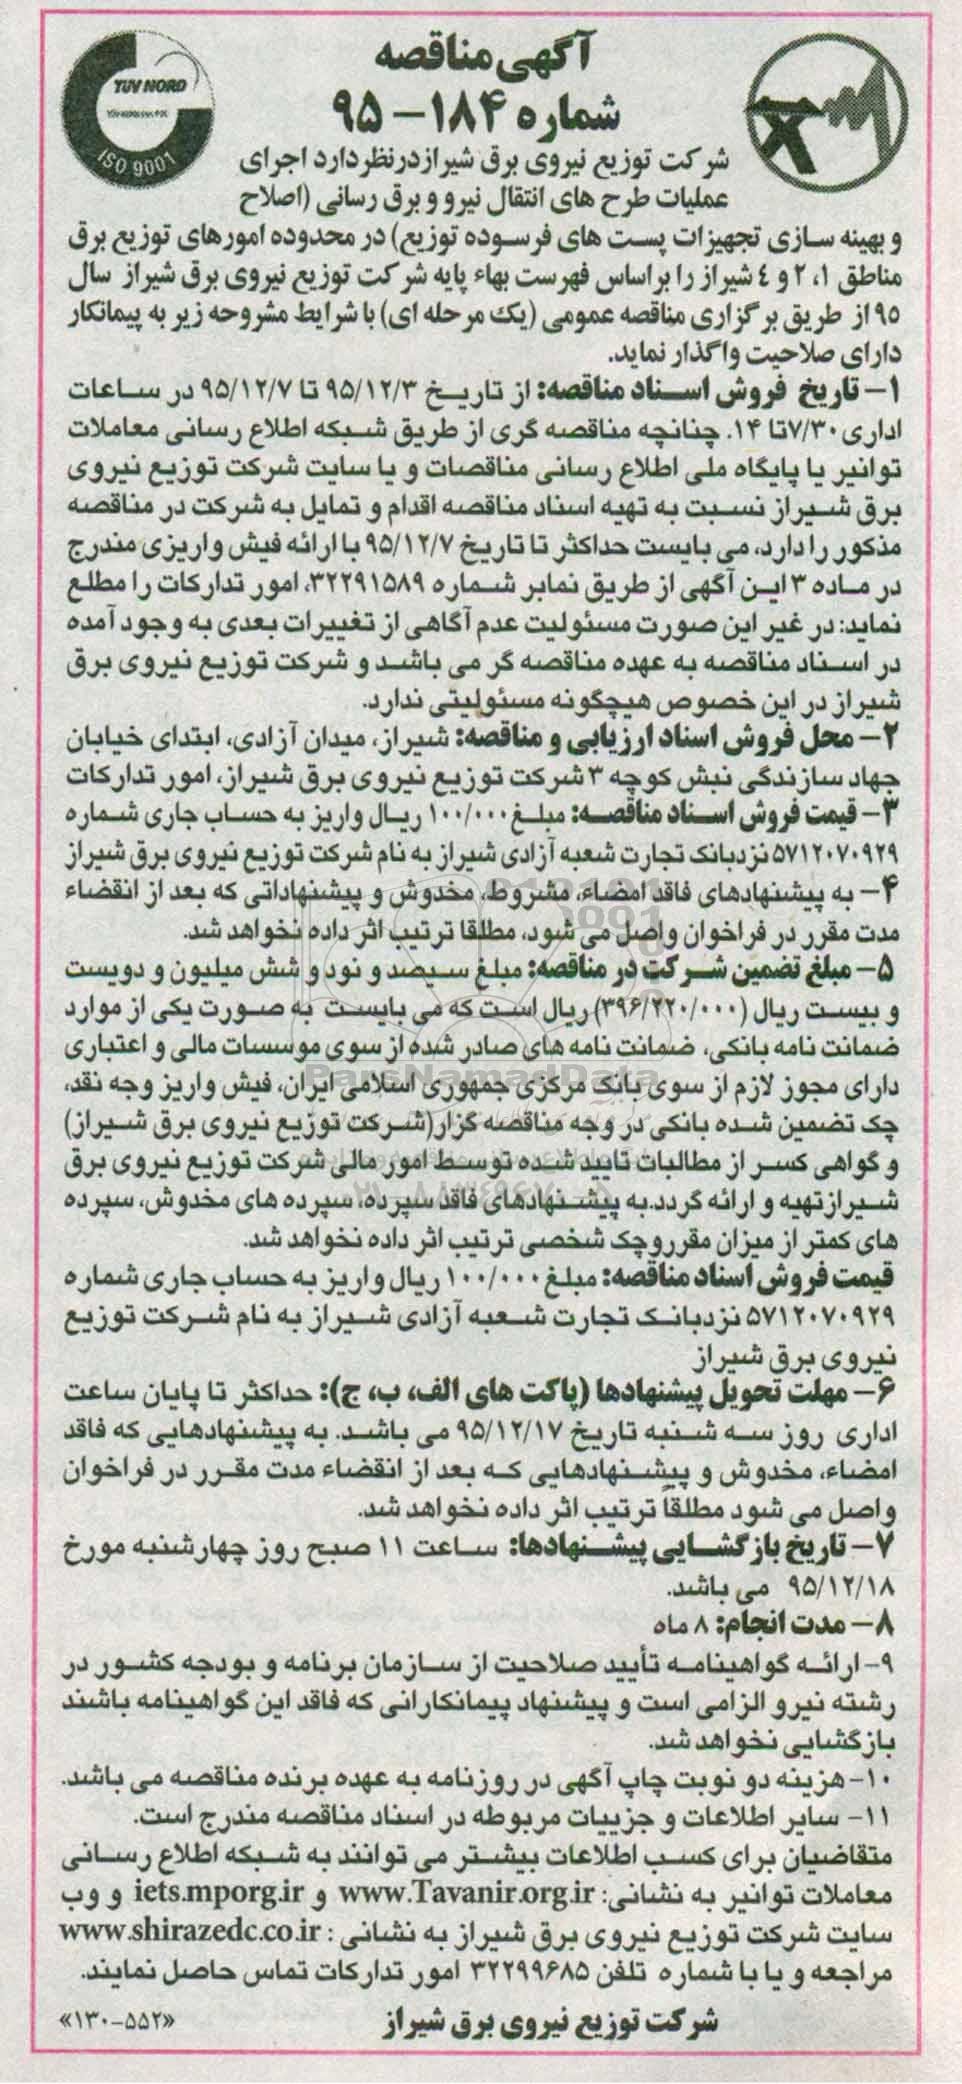 آگهی مناقصه
شماره ۱۸۴ – ۹۵
TÜV NORD
ISO 9001
شرکت توزیع نیروی برق شیراز درنظر دارد اجرای
عملیات طرح های انتقال نیرو و برق رسانی (اصلاح
و بهینه سازی تجهیزات پست های فرسوده توزیع) در محدوده امورهای توزیع برق
مناطق ۱، ۲ و ٤ شیراز را براساس فهرست بهاء پایه شرکت توزیع نیروی برق شیراز سال
۹۵ از طریق برگزاری مناقصه عمومی (یک مرحله ای) با شرایط مشروحه زیر به پیمانکار
دارای صلاحیت واگذار نماید.
۱– تاریخ فروش اسناد مناقصه: از تاریخ ۹۵/۱۲/۳ تا ۹۵/۱۲/۷ در ساعات
اداری ۷/۳۰ تا ۱۴. چنانچه مناقصه گری از طریق شبکه اطلاع رسانی معاملات
توانیر یا پایگاه ملی اطلاع رسانی مناقصات و یا سایت شرکت توزیع نیروی
برق شیراز نسبت به تهیه اسناد مناقصه اقدام و تمایل به شرکت در مناقصه
مذکور را دارد، می بایست حداکثر تا تاریخ ۹۵/۱۲/۷ با ارائه فیش واریزی مندرج
در ماده ۳ این آگهی از طریق نمابر شماره ۳۲۲۹۱۵۸۹، امور تدارکات را مطلع
نماید: در غیر این صورت مسئولیت عدم آگاهی از تغییرات بعدی به وجود آمده
در اسناد مناقصه به عهده مناقصه گر می باشد و شرکت توزیع نیروی برق
شیراز در این خصوص هیچگونه مسئولیتی ندارد.
۲– محل فروش اسناد ارزیابی و مناقصه: شیراز، میدان آزادی، ابتدای خیابان
جهاد سازندگی نبش کوچه ۳ شرکت توزیع نیروی برق شیراز، امور تدارکات
۳– قیمت فروش اسناد مناقصه: مبلغ ۱۰۰/۰۰۰ ریال واریز به حساب جاری شماره
۵۷۱۲۰۷۰۹۲۹ نزد بانک تجارت شعبه آزادی شیراز به نام شرکت توزیع نیروی برق شیراز
۴– به پیشنهادهای فاقد امضاء، مشروط، مخدوش و پیشنهاداتی که بعد از انقضاء
مدت مقرر در فراخوان واصل می شود، مطلقا ترتیب اثر داده نخواهد شد.
۵– مبلغ تضمین شرکت در مناقصه: مبلغ سیصد و نود و شش میلیون و دویست
و بیست ریال (۳۹۶/۲۲۰/۰۰۰) ریال است که می بایست به صورت یکی از موارد
ضمانت نامه بانکی، ضمانت نامه های صادر شده از سوی موسسات مالی و اعتباری
ParsNamadData
دارای مجوز لازم از سوی بانک مرکزی جمهوری اسلامی ایران، فیش واریز وجه نقد،
چک تضمین شده بانکی در وجه مناقصه گزار(شرکت توزیع نیروی برق شیراز)
و گواهی کسر از مطالبات تایید شده توسط امور مالی شرکت توزیع نیروی برق
شیراز تهیه و ارائه گردد.به پیشنهادهای فاقد سپرده، سپرده های مخدوش، سپرده
های کمتر از میزان مقرر وچک شخصی ترتیب اثر داده نخواهد شد.
قیمت فروش اسناد مناقصه: مبلغ ۱۰۰/۰۰۰ ریال واریز به حساب جاری شماره
۵۷۱۲۰۷۰۹۲۹ نزد بانک تجارت شعبه آزادی شیراز به نام شرکت توزیع
نیروی برق شیراز
۶– مهلت تحویل پیشنهادها (پاکت های الف، ب، ج): حداکثر تا پایان ساعت
اداری روز سه شنبه تاریخ ۹۵/۱۲/۱۷ می باشد. به پیشنهادهایی که فاقد
امضاء، مخدوش و پیشنهادهایی که بعد از انقضاء مدت مقرر در فراخوان
واصل می شود مطلقاً ترتیب اثر داده نخواهد شد.
۷– تاریخ بازگشایی پیشنهادها: ساعت ۱۱ صبح روز چهارشنبه مورخ
۹۵/۱۲/۱۸ می باشد.
۸– مدت انجام: ۸ ماه
۹- ارائه گواهینامه تأیید صلاحیت از سازمان برنامه و بودجه کشور در
رشته نیرو الزامی است و پیشنهاد پیمانکارانی که فاقد این گواهینامه باشند
بازگشایی نخواهد شد.
۱۰- هزینه دو نوبت چاپ آگهی در روزنامه به عهده برنده مناقصه می باشد.
۱۱- سایر اطلاعات و جزییات مربوطه در اسناد مناقصه مندرج است.
متقاضیان برای کسب اطلاعات بیشتر می توانند به شبکه اطلاع رسانی
معاملات توانیر به نشانی: www.Tavanir.org.ir و iets.mporg.ir و وب
سایت شرکت توزیع نیروی برق شیراز به نشانی : www.shirazedc.co.ir
مراجعه و یا با شماره تلفن ۳۲۲۹۹۶۸۵ امور تدارکات تماس حاصل نمایند.
شرکت توزیع نیروی برق شیراز
«۱۳۰-۵۵۲»